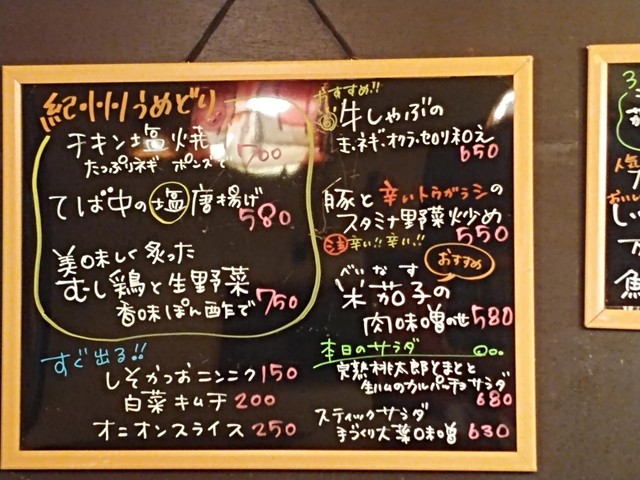 紀州うめどり
チキン塩焼
たっぷりネギ ポンズで 700
てば中の塩唐揚げ
580
美味しく炙った
むし鶏と生野菜
香味ぽん酢で 750
すぐ出る!!
しそかつおニンニク 150
白菜キムチ 200
オニオンスライス 250
おすすめ!!
牛しゃぶの
ネギ・オクラ・セロリ和え
650
豚と辛いトウガラシの
スタミナ野菜炒め
550
注 辛い!! 辛い!!
おすすめ
べいなす
米茄子の
肉味噌のせ 580
本日のサラダ
完熟桃太郎とまとと
生ハムのカルパッチョサラダ
680
スティックサラダ
手づくり大葉味噌 630